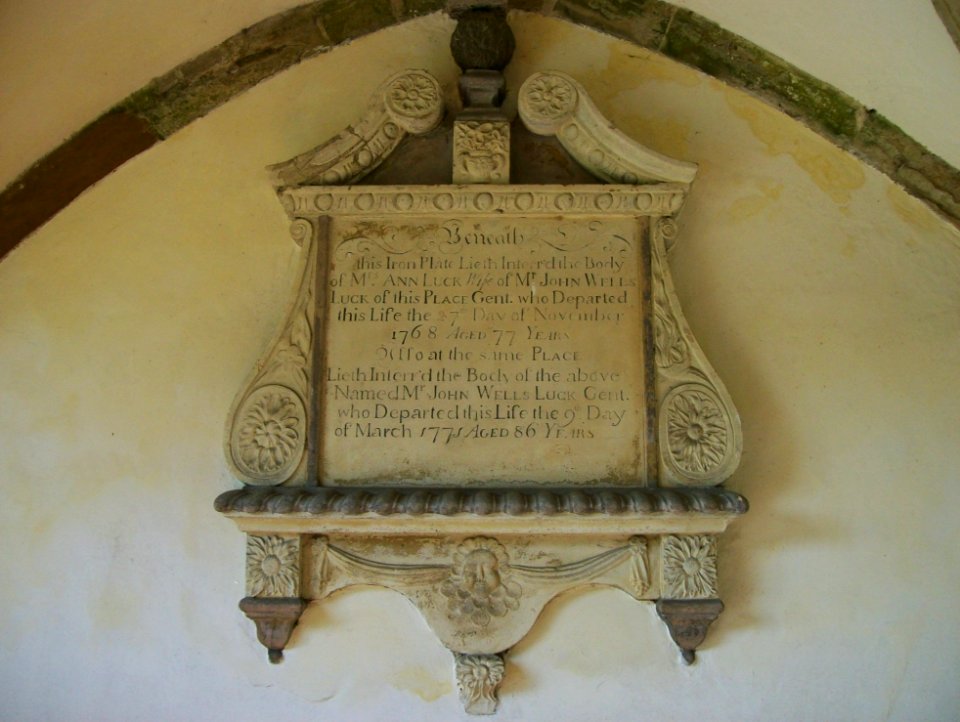 Beneath
this Iron Plate Lieth Interr'd the Body
of Mrs. ANN LUCK Wife of Mr JOHN WELLS
LUCK of this PLACE Gent. who Departed
this Life the 27th Day of November
1768 AGED 77 YEARS
Also at the same PLACE
Lieth Interr'd the Body of the above
Named Mr JOHN WELLS LUCK Gent.
who Departed this Life the 9th Day
of March 1771 AGED 86 YEARS